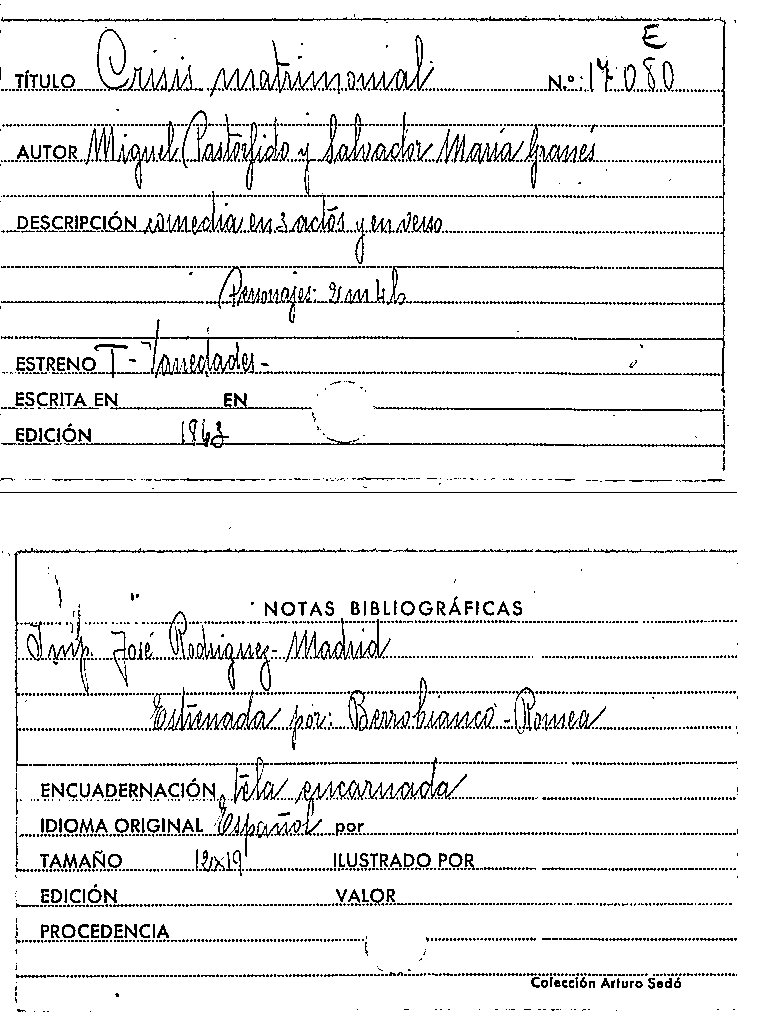 E
TÍTULO Crisis matrimonial N.º: 17080
AUTOR Miguel Pastorfido y Salvador María Granés
DESCRIPCIÓN comedia en 3 actos y en verso
Personajes: 2 m 4 h
ESTRENO T - Variedades -
ESCRITA EN EN
EDICIÓN 1863
NOTAS BIBLIOGRÁFICAS
Imp. José Rodriguez - Madrid
Estrenada por: Berrobianco - Romea
ENCUADERNACIÓN tela encarnada
IDIOMA ORIGINAL Español por
TAMAÑO 12x19 ILUSTRADO POR
EDICIÓN VALOR
PROCEDENCIA
Colección Arturo Sedó